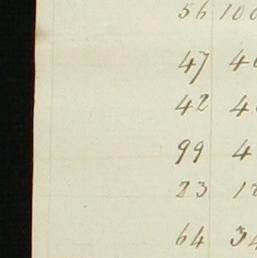 56 100
47 4
42 4
99 4
23 1
64 34